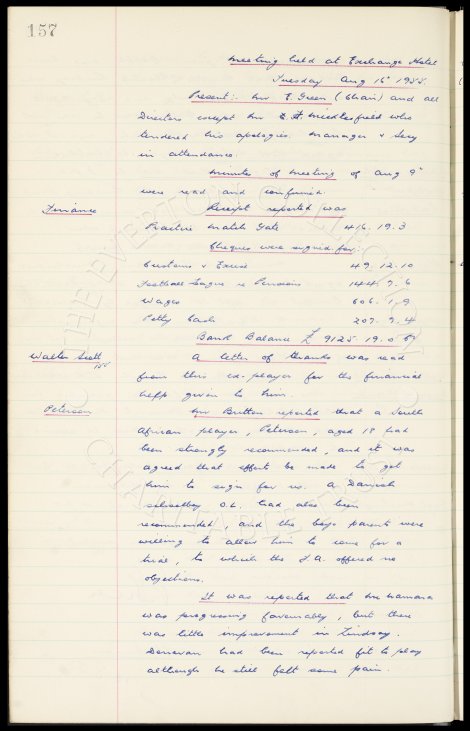 157
Meeting held at Exchange Hotel
Tuesday Aug 16 1955.
Present:. Mr E. Green (Chair) and all
Directors except Mr who
tendered his apologies. Manager & Secy
in attendance.
Minutes of Meeting of Aug 9
were read and confirmed.
Finance
Receipt reported was
Practice Match Gate 416. 19. 3
Cheques were signed for:-
Customs & Excise 49. 12. 10
Football League re Pensions 144. 7. 6
Wages 606. 1. 9
Petty Cash 207. 7. 4
Bank Balance £ 9125 19. 0
Walter Scott
A letter of thanks was read
from this ex-player for the financial
help given to him.
Peterson
Mr Britton reported that a South
African player, Peterson, aged 18 had
been strongly recommended, and it was
agreed that effort be made to get
him to sign for us. A Danish
schoolboy O.L. had also been
recommended, and the boys parents were
willing to allow him to come for a
trial, to which the F.A. offered no
objections.
It was reported that McNamara
was progressing favourably, but there
was little improvement in Lindsay.
Donovan had been reported fit to play
although he still felt some pain.
THE EVERTON COLLECTION
CHARITABLE TRUST